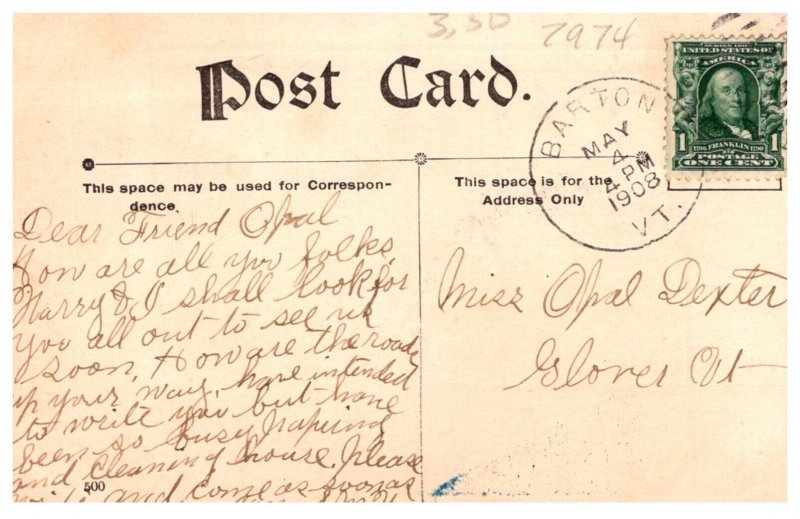 3,50 7974
Post Card.
SERIES 1902
UNITED STATES OF
AMERICA
1 1706 FRANKLIN 1790 1
POSTAGE
ONE CENT
BARTON
MAY
4
4 PM
1908
VT.
This space may be used for Correspon-
dence
This space is for the
Address Only
Dear Friend Opal
How are all you folks,
Harry & I shall look for
you all out to see us
soon, How are the roads
up your way, have intended
to write you but have
been so busy papering
and cleaning house. Please
and come as soon as
500
Miss Opal Dexter
Glover Vt